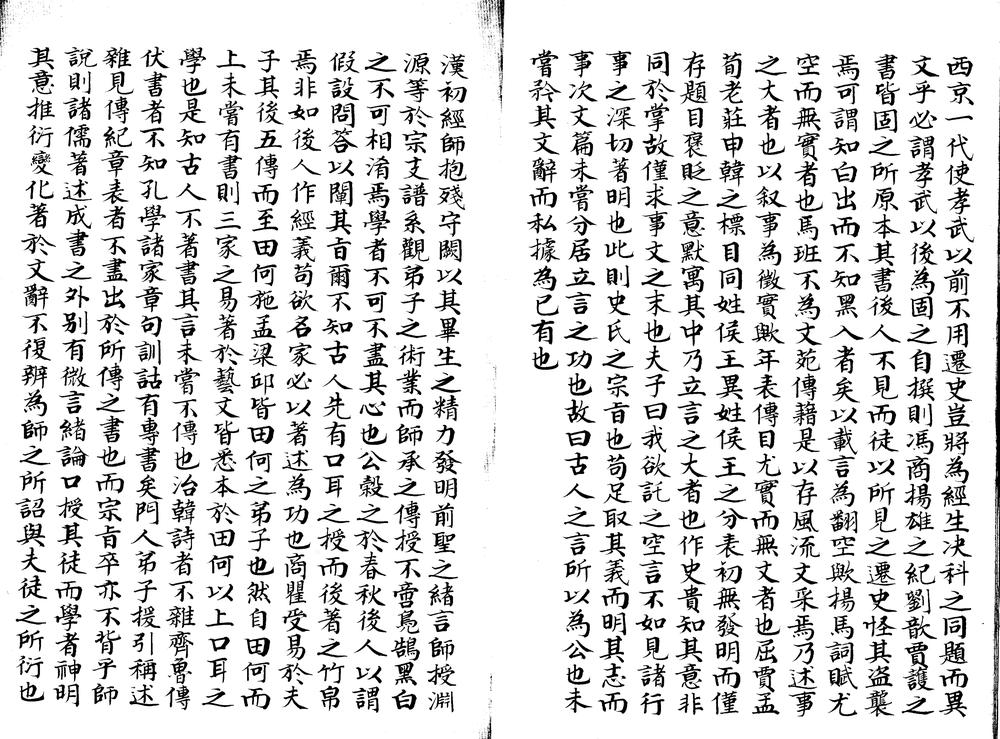 西京一代使孝武以前不用遷史豈將為經生决科之同題而異
文乎必謂孝武以後為固之自撰則馮商揚雄之紀劉歆賈護之
書皆固之所原本其書後人不見而徒以所見之遷史怪其盗襲
焉可謂知白出而不知黑入者矣以載言為翻空歟揚馬詞賦尤
空而無實者也馬班不為文苑傳藉是以存風流文采焉乃述事
之大者也以叙事為徵實歟年表傳目尤實而無文者也屈賈孟
荀老莊申韓之標目同姓侯王異姓侯王之分表初無發明而僅
存題目褒貶之意默寓其中乃立言之大者也作史貴知其意非
同於掌故僅求事文之末也夫子曰我欲託之空言不如見諸行
事之深切著明也此則史氏之宗㫖也苟足取其義而明其志而
事次文篇未嘗分居立言之功也故曰古人之言所以為公也未
嘗矜其文辭而私據為已有也
漢初經師抱殘守闕以其畢生之精力發明前聖之緒言師授淵
源等於宗支譜系觀弟子之術業而師承之傳授不啻鳬鵠黑白
之不可相淆焉學者不可不盡其心也公糓之於春秋後人以謂
假設問答以闡其㫖爾不知古人先有口耳之授而後著之竹帛
焉非如後人作經義苟欲名家必以著述為功也商瞿受易於夫
子其後五傳而至田何施孟梁邱皆田何之弟子也然自田何而
上未嘗有書則三家之易著於藝文皆悉本於田何以上口耳之
學也是知古人不著書其言未嘗不傳也治韓詩者不雜齊魯傳
伏書者不知孔學諸家章句訓詁有專書矣門人弟子援引稱述
雜見傳紀章表者不盡出於所傳之書也而宗㫖卒亦不背乎師
說則諸儒著述成書之外别有微言緒論口授其徒而學者神明
其意推衍變化著於文辭不復辨為師之所詔與夫徒之所衍也